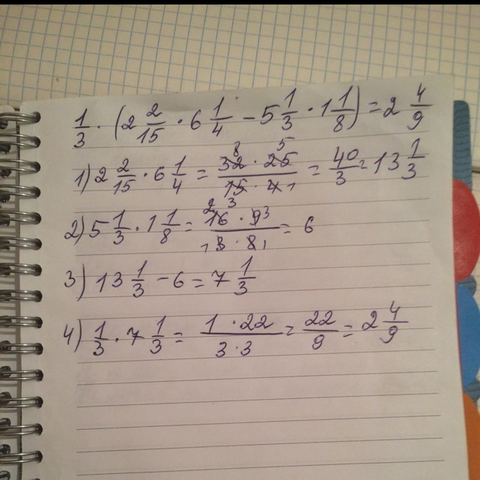 1/3 · (2 2/15 · 6 1/4 − 5 1/3 · 1 1/8) = 2 4/9
1) 2 2/15 · 6 1/4 = 32 8 · 25 5 / 15 3 · 4 1 = 40/3 = 13 1/3
2) 5 1/3 · 1 1/8 = 16 2 · 9 3 / 1 3 · 8 1 = 6
3) 13 1/3 − 6 = 7 1/3
4) 1/3 · 7 1/3 = 1 · 22 / 3 · 3 = 22/9 = 2 4/9